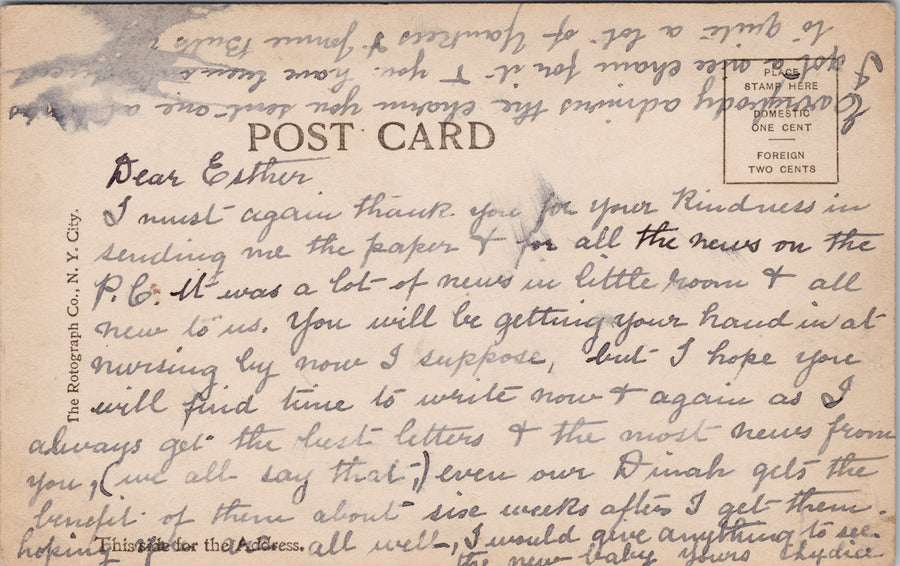 POST CARD
PLACE
STAMP HERE
DOMESTIC
ONE CENT
FOREIGN
TWO CENTS
The Rotograph Co., N. Y. City.
Dear Esther
I must again thank you for your kindness in
sending me the paper & for all the news on the
P.C. It was a lot of news in little room & all
new to us. You will be getting your hand in at
nursing by now I suppose, but I hope you
will find time to write now & again as I
always get the best letters & the most news from
you, (we all say that,) even our Dinah gets the
benefit of them about sise weeks after I get them.
hoping you are all well, I would give anything to see
the new baby yours
This side for the Address.
Everybody admires the charm you sent one at
got a nice chain for it & you have been
to quite a lot of Yankees & Jonnie Bulls